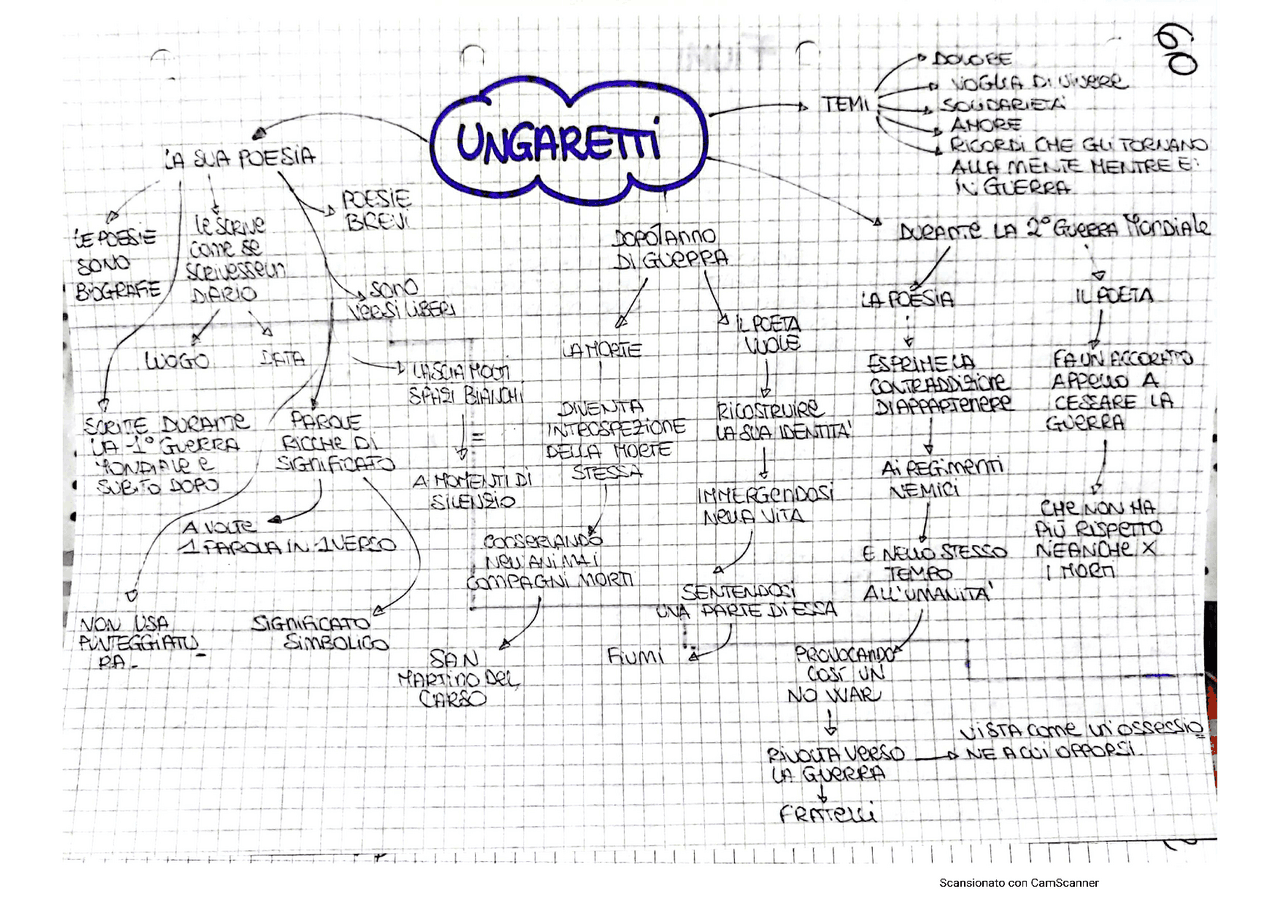 60
UNGARETTI
TEMI
DOLORE
VOGLIA DI VIVERE
SOLIDARIETÀ
AMORE
RICORDI CHE GLI TORNANO
ALLA MENTE MENTRE E'
IN GUERRA
LA SUA POESIA
LE POESIE
SONO
BIOGRAFIE
LE SCRIVE
COME SE
SCRIVESSE UN
DIARIO
LUOGO
DATA
POESIE
BREVI
SONO
VERSI LIBERI
LASCIA MOLTI
SPAZI BIANCHI
=
A MOMENTI DI
SILENZIO
SCRITTE DURANTE
LA 1° GUERRA
MONDIALE E
SUBITO DOPO
PAROLE
RICCHE DI
SIGNIFICATO
A VOLTE
1 PAROLA IN 1 VERSO
NON USA
PUNTEGGIATU_
RA_
SIGNIFICATO
SIMBOLICO
DOPO 1 ANNO
DI GUERRA
LA MORTE
DIVENTA
INTROSPEZIONE
DELLA MORTE
STESSA
CONSERVANDO
NELL'ANIMA I
COMPAGNI MORTI
SAN
MARTINO DEL
CARSO
IL POETA
VUOLE
RICOSTRUIRE
LA SUA IDENTITA'
IMMERGENDOSI
NELLA VITA
SENTENDOSI
UNA PARTE DI ESSA
FIUMI
DURANTE LA 2° GUERRA MONDIALE
LA POESIA
ESPRIME LA
CONTRADDIZIONE
DI APPARTENERE
AI REGIMENTI
NEMICI
E NELLO STESSO
TEMPO
ALL'UMANITA'
PROVOCANDO
COSÌ UN
NO WAR
RIVOLTA VERSO
LA GUERRA
VISTA COME UN'OSSESSIO
NE A CUI OPPORSI.
FRATELLI
IL POETA
FA UN ACCORATO
APPELLO A
CESSARE LA
GUERRA
CHE NON HA
PIÙ RISPETTO
NEANCHE X
I MORTI
Scansionato con CamScanner